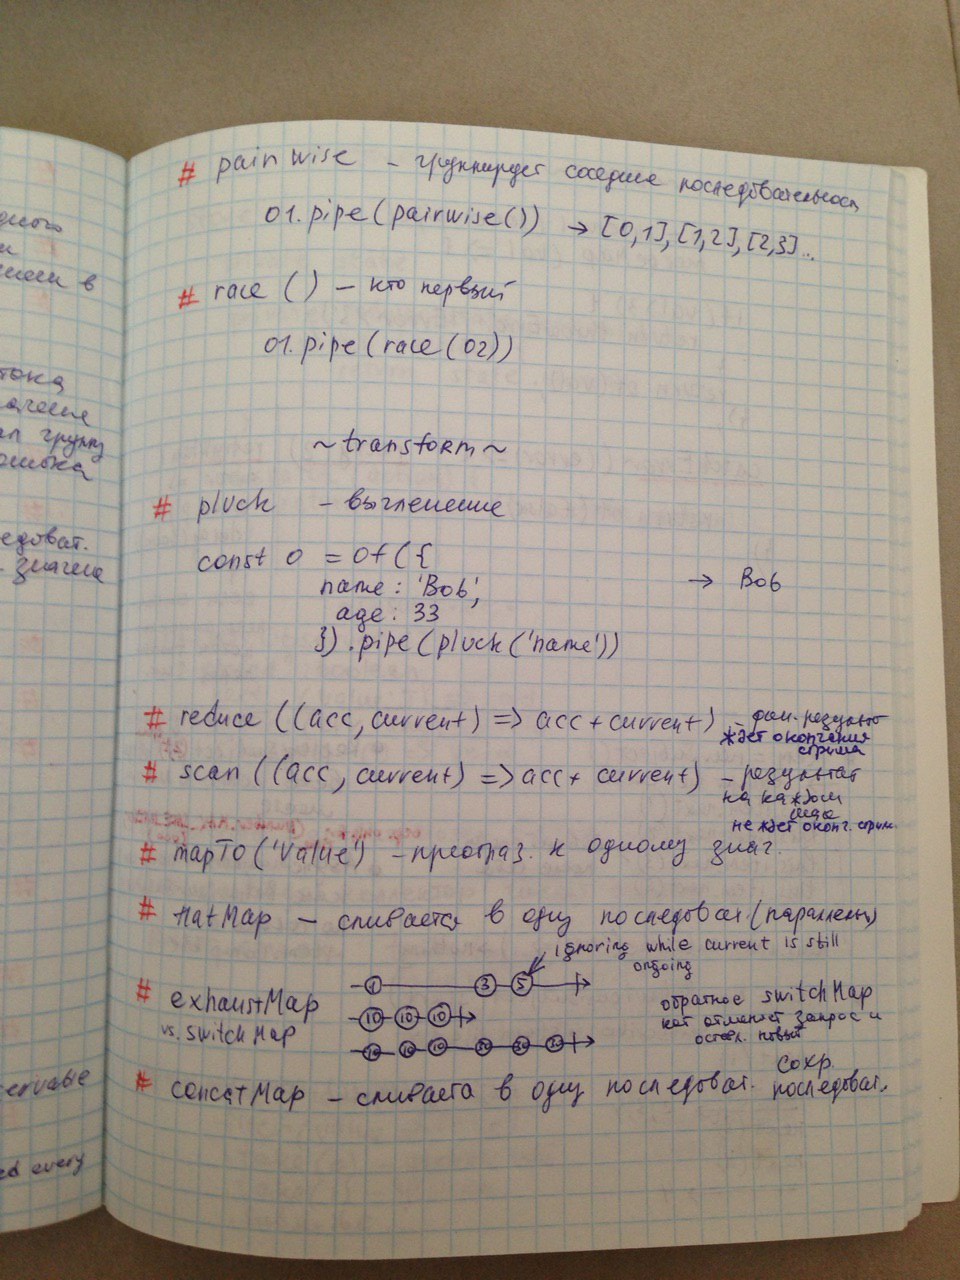 # pairwise – группирует соседние последовательност
o1.pipe(pairwise()) → [0,1],[1,2],[2,3]...
# race () – кто первый
o1.pipe(race(o2))
~transform~
# pluck – вычленение
const o = of({
name: 'Bob',
age: 33 → Bob
}).pipe(pluck('name'))
# reduce ((acc, current) => acc + current) – фин. результ
ждет окончания
стрима
# scan ((acc, current) => acc + current) – результат
на каждом
шаге
не ждет оконч. стрим.
# mapTo ('Value') – преобраз. к одному знач.
# flatMap – сливается в одну последоват. (параллельн)
ignoring while current is still
ongoing
# exhaustMap
vs. switchMap
1 3 5
10 10 10
10 10 10 30 30 30
обратное switchMap
кот отменяет запрос и
оставл. новый
# concatMap – сливается в одну последоват. сохр.
последоват.
дного
и
в
тока
ачение
ал групп
ошибка
едоват.
. значение
ervable
ed every